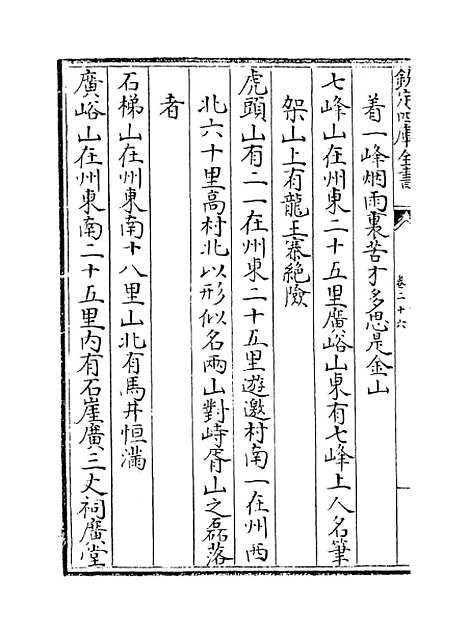 欽定四庫全書
卷二十六
着一峰烟雨裏苦才多思是金山
七峰山在州東二十五里廣峪山東有七峰上人名筆
架山上有龍王寨絶險
虎頭山有二一在州東二十五里遊邀村南一在州西
北六十里高村北以形似名兩山對峙胥山之磊落
者
石梯山在州東南十八里山北有馬井恒滿
廣峪山在州東南二十五里内有石崖廣三丈祠廣堂